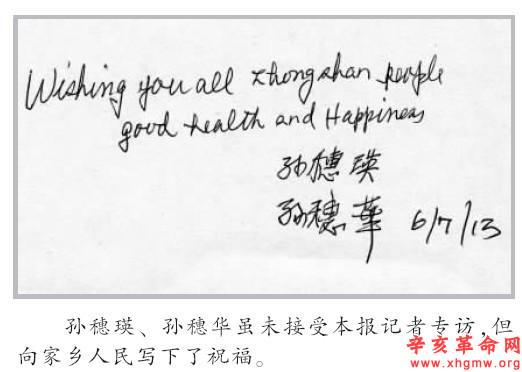 Wishing you all Zhongshan people
good health and Happiness
孙穗瑛
孙穗華 6/7/13
孙穗瑛、孙穗华虽未接受本报记者专访,但
向家乡人民写下了祝福。
辛亥革命网
www.xhgmw.org